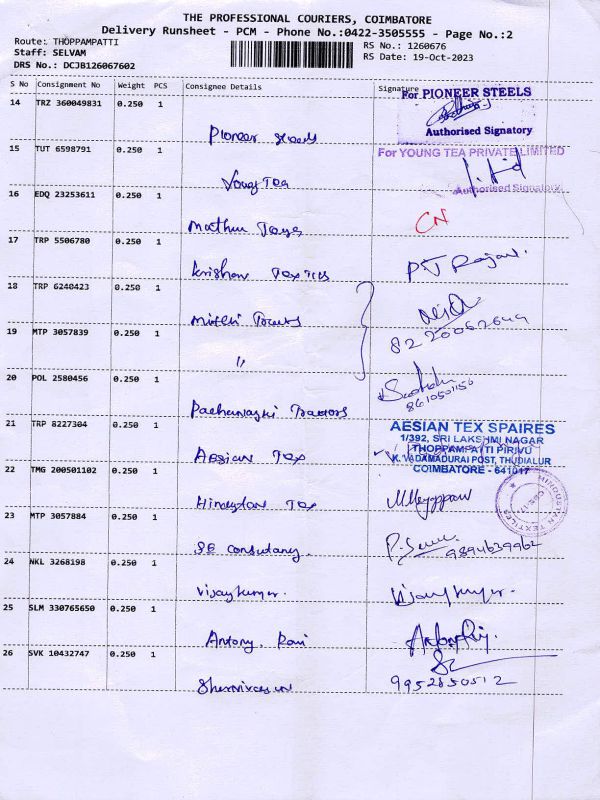 THE PROFESSIONAL COURIERS, COIMBATORE
Delivery Runsheet - PCM - Phone No.:0422-3505555 - Page No.:2
Route: THOPPAMPATTI
RS No.: 1260676
Staff: SELVAM
RS Date: 19-Oct-2023
DRS No.: DCJB126067602
S No Consignment No Weight PCS Consignee Details Signature
For PIONEER STEELS
14 TRZ 360049831 0.250 1
Authorised Signatory
Pioneer Steels
15 TUT 6598791 0.250 1
For YOUNG TEA PRIVATE LIMITED
Young Tea
Authorised Signatory
16 EDQ 23253611 0.250 1
CN
17 TRP 5506780 0.250 1
Krishna Tex
18 TRP 6240423 0.250 1
19 MTP 3057839 0.250 1
"
20 POL 2580456 0.250 1
8610501156
21 TRP 8227304 0.250 1
AESIAN TEX SPAIRES
1/392, SRI LAKSHMI NAGAR
THOPPAMPATTI PIRIVU
K. VADAMADURAI POST, THUDIALUR
COIMBATORE - 641017
Aesian Tex
22 TMG 200501102 0.250 1
Hindustan Tex
HINDUSTAN TEXTILES
23 MTP 3057884 0.250 1
SE Consultancy.
9894639962
24 NKL 3268198 0.250 1
Vijaykumar. Vijaykumar.
25 SLM 330765650 0.250 1
Antony. Ravi
26 SVK 10432747 0.250 1
9952850512